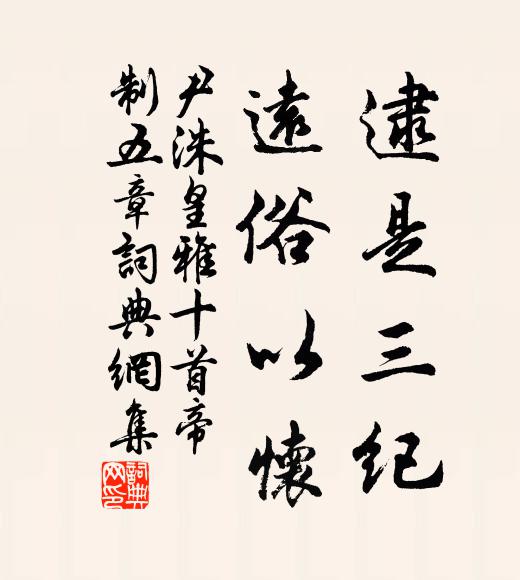 逮是三纪
遠俗以懷
尹洙皇雅十首帝
制五章詞典網集
詞典网印